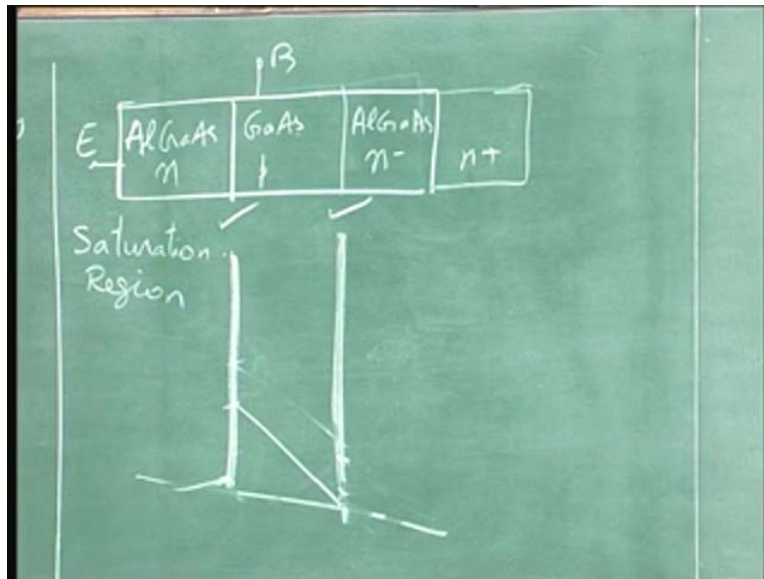 B
E AlGaAs GaAs AlGaAs
n p n- n+
Saturation
Region